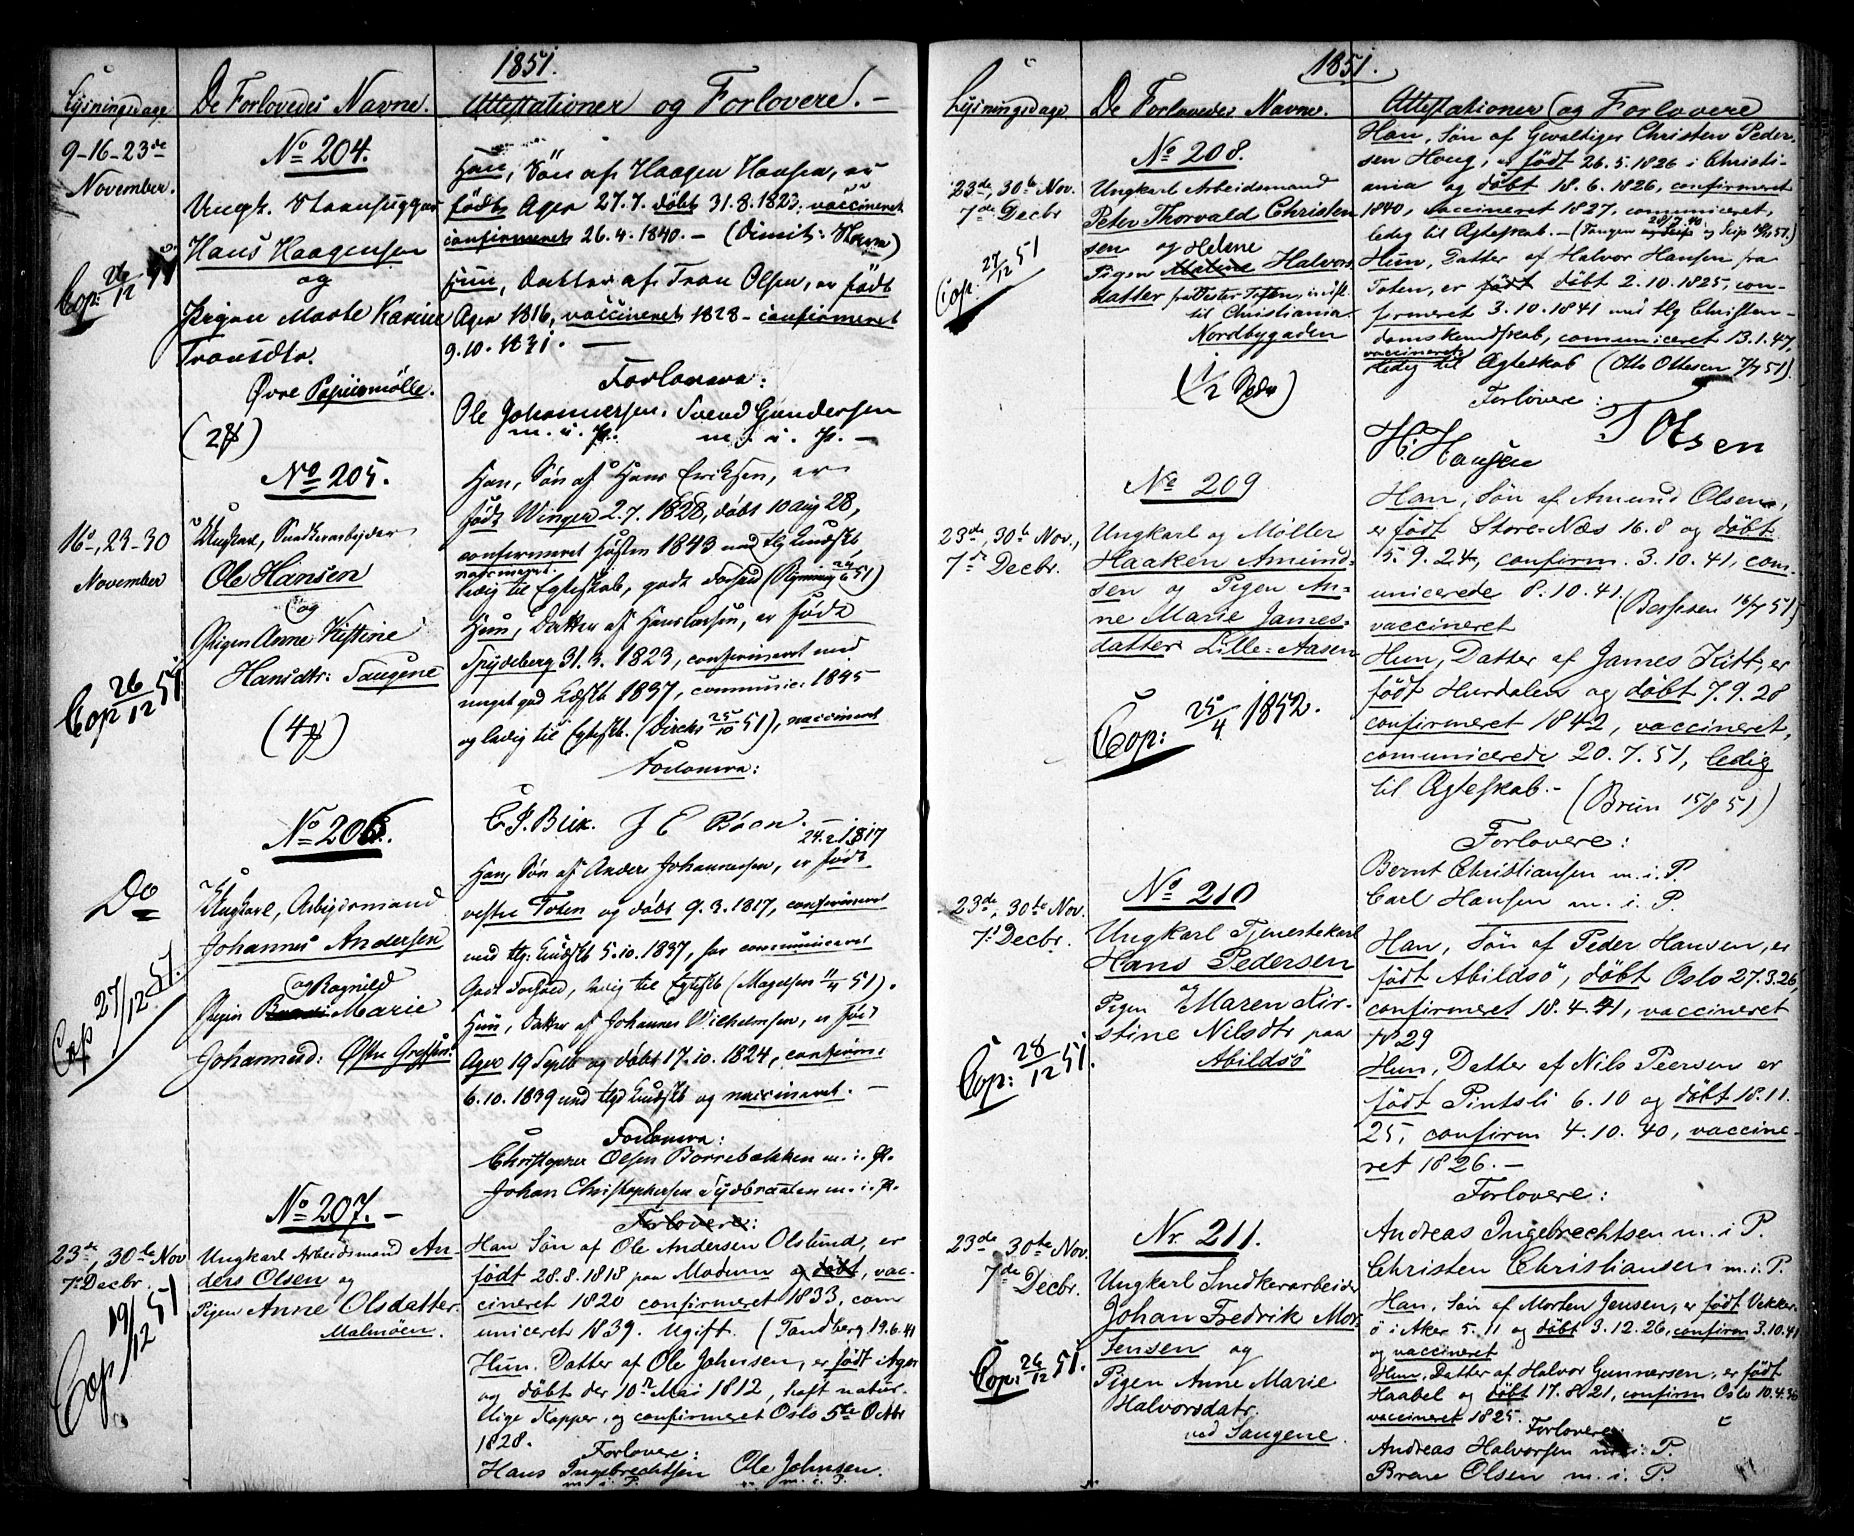 1851.
Lysningsdage De Forlovedes Navne. Attestationer og Forlovere. –
9-16-23de
November.
No 204.
Ungk.
Hans Haagensen
og
Pigen Marte Karine
Transdtr.
Øvre Papiirmølle.
(2)
Cop: 26/12 51
Han, Søn af Haagen Hansen, er
født Ager 27.7. døbt 31.8.1823, vaccineret
confirmeret 26.4.1840. – (Dimit:
Hun, Datter af Tran Olsen, er født
Ager 1816, vaccineret 1828 – confirmeret
9.10.1831. –
Forlovere:
Ole Johannessen. Svend Gundersen
m. i. P. m. i. P. –
16, 23-30
November
No 205.
Ungkarl, Snedkerarbejder
Ole Hansen
og
Pigen Anne Kistine
Hansdtr: Saugene
(4)
Cop 26/12 51
Han, Søn af Hans Eriksen, er
født Winger 2.7.1828, døbt 10 aug 28,
confirmeret Høsten 1843 med
vaccineret.
ledig til Egteskab, godt Forhold
Hun, Datter af Hans Larsen, er født
Spydeberg 31.3.1823, confirmeret med
meget god 1837, communic: 1845
og ledig til Egtesk. (Dircks 25/10 51), vaccineret
Forlovere:
C. P. Bick. J E Böen. –
No 206.
Do
Ungkarl, Arbejdsmand
Johannes Andersen
og Ragnild
Pigen Marie
Johannesd: Østre Grefsen:
Cop 27/12 51.
24.2.1817
Han, Søn af Anders Johannessen, er født
vestre Toten og døbt 9.3.1817, confirmeret
med tlg: Kundsk 5.10.1837, har communiceret
Godt Forhold, ledig til Egtesk (Magelsen 11/4 51).
Hun, Datter af Johannes Wilhelmsen, er født
Ager 19 Septb og døbt 17.10.1824, confirm:
6.10.1839 med tlgd Kundsk og vaccineret. –
Forlovere:
Christopher Olsen Borrebækken m. i. P.
Johan Christophersen Sydbraaten m. i. P.
No 207. –
23de, 30te Nov
7de Decbr.
Ungkarl Arbeidsmand An-
ders Olsen og
Pigen Anne Olsdatter
Malmöen.
Cop 19/12 51
Forlovere:
Han Søn af Ole Andersen Olslund, er
født 28.8.1818 paa Modum og døbt, vac-
cineret 1820 confirmeret 1833, com
uniceret 1839. Ugift. (Tandberg 19.6.41
Hun. Datter af Ole Johnsen, er født i Ager
og døbt den 10n Mai 1812, haft natur-
lige Kopper, og confirmeret Oslo 5te Octbr
1828.
Forlovere:
Hans Ingebrechtsen Ole Johnsen.
m. i. P. m. i. P.
1851.
Lysningsdage De Forlovedes Navne. Attestationer og Forlovere
No 208.
23de, 30te Nov.
7de Decbr
Ungkarl Arbeidsmand
Peter Thorvald Christen
sen og Helene
Pigen Malene Halvors
datter fra Vester Toten,
til Christiania
Nordbygaden
(1/2 )
Cop: 27/12 51
Han, Søn af Gevaldiger Christen Peder-
sen Houg, er født 26.5.1826 i Christi-
ania og døbt 18.6.1826, confirmeret
1840, vaccineret 1827, communiceret,
ledig til Ægteskab. –
Hun, Datter af Halvor Hansen fra
Toten, er født døbt 2.10.1825, con-
firmeret 3.10.1841 med tlg Christen-
domskundskab, communiceret 13.1.47,
vaccineret,
ledig til Ægteskab (Otto Ottesen 7/7 51).
Forlovere:
H. Hansen T Olsen
No 209
23de, 30te Nov.,
7de Decbr.
Ungkarl og Møller
Haaken Amund-
sen og Pigen An-
ne Marie James-
datter Lille-Aasen
Cop: 25/4 1852.
Han, Søn af Amund Olsen,
er født Store-Næs 16.8 og døbt
5.9.24, confirm. 3.10.41, com-
unicerede 8.10.41. (Bessesen 16/7 51)
vaccineret
Hun, Datter af James Kitt, er
født Hurdalen og døbt 7.9.28
confirmeret 1842, vaccineret,
comunicerede 20.7.51, ledig
til Ægteskab. – (Brun 15/8 51)
Forlovere:
Bernt Christiansen m. i. P.
Carl Hansen m. i. P.
No 210
23de, 30te Nov.
7de Decbr.
Ungkarl Tjenestekarl
Hans Pedersen
og
Pigen Maren Kir-
stine Nilsdtr paa
Abildsö
Cop: 28/12 51.
Han, Søn af Peder Hansen, er
født Abildsö, döbt Oslo 27.3.26,
confirmeret 18.4.41, vaccineret
1829
Hun, Datter af Nils Peerson er
født Pintsli 6.10 og døbt 18.11.
25, confirm 4.10.40, vaccine-
ret 1826. –
Forlovere:
Andreas Ingebrechtsen m. i P.
Christen Christiansen m. i. P.
Nr. 211.
23de, 30te Nov.
7de Decbr.
Ungkarl Snedkerarbeider
Johan Fredrik Mor-
Jensen og
Pigen Anne Marie
Halvorsdatr.
ved Saugene.
Cop: 26/12 51.
Han, Søn af Morten Jensen, er født Vekker-
ö i Aker 5.11 og døbt 3.12.26, confirm 3.10.41
og vaccineret
Hun, Datter af Halvor Gunnersen, er født
Haabel og døbt 17.8.21, confirm Oslo 10.4.36
vaccineret 1825.
Forlovere
Andreas Halvorsen m. i. P.
Brede Olsen m. i. P.